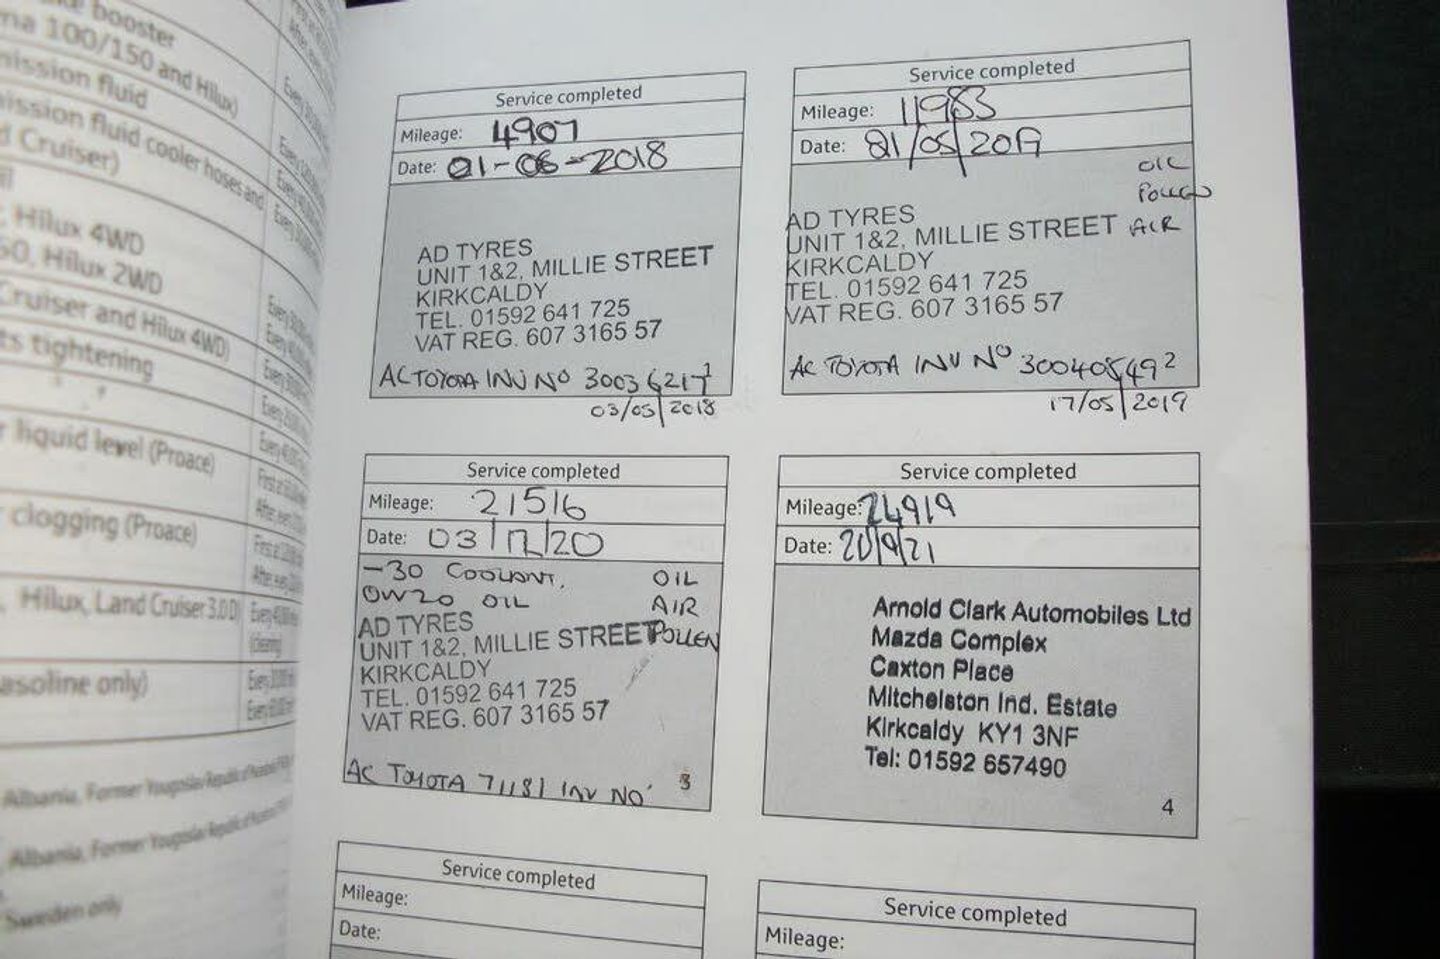 booster
100/150 and Hilux)
mission fluid
mission fluid cooler hoses and
Cruiser)
Hilux 4WD
Hilux 2WD
Cruiser and Hilux 4WD)
tightening
liquid level (Proace)
clogging (Proace)
Hilux, Land Cruiser 3.0 D)
(cleaning)
asoline only)
Albania, Former Yougoslav Republic of
Albania, Former Yougoslav Republic of
Sweden only
Service completed
Mileage: 4907
Date: 01-06-2018
AD TYRES
UNIT 1&2, MILLIE STREET
KIRKCALDY
TEL. 01592 641 725
VAT REG. 607 3165 57
AC TOYOTA INV NO
1
03/05/2018
Service completed
Mileage: 11983
Date: /05/2019
OIL
POLLEN
AIR
AD TYRES
UNIT 1&2, MILLIE STREET
KIRKCALDY
TEL. 01592 641 725
VAT REG. 607 3165 57
AC TOYOTA INV NO
2
17/05/2019
Service completed
Mileage: 21516
Date: 03/12/20
-30 COOLANT. OIL
0W20 OIL AIR
POLLEN
AD TYRES
UNIT 1&2, MILLIE STREET
KIRKCALDY
TEL. 01592 641 725
VAT REG. 607 3165 57
AC TOYOTA 71181 INV NO
3
Service completed
Mileage: 24919
Date: 20/9/21
Arnold Clark Automobiles Ltd
Mazda Complex
Caxton Place
Mitchelston Ind. Estate
Kirkcaldy KY1 3NF
Tel: 01592 657490
4
Service completed
Mileage:
Date:
Service completed
Mileage: